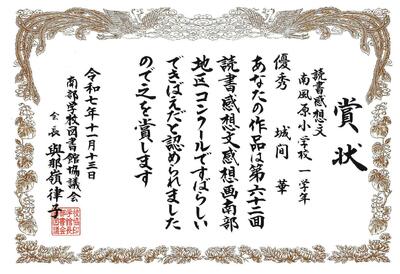 賞状
読書感想文
南風原小学校 一学年
優秀 城間 華
あなたの作品は第六十二回
読書感想文感想画南部
地区コンクールですばらしい
できばえだと認められました
ので之を賞します
令和七年十一月十三日
南部学校図書館協議会
会長 與那嶺律子